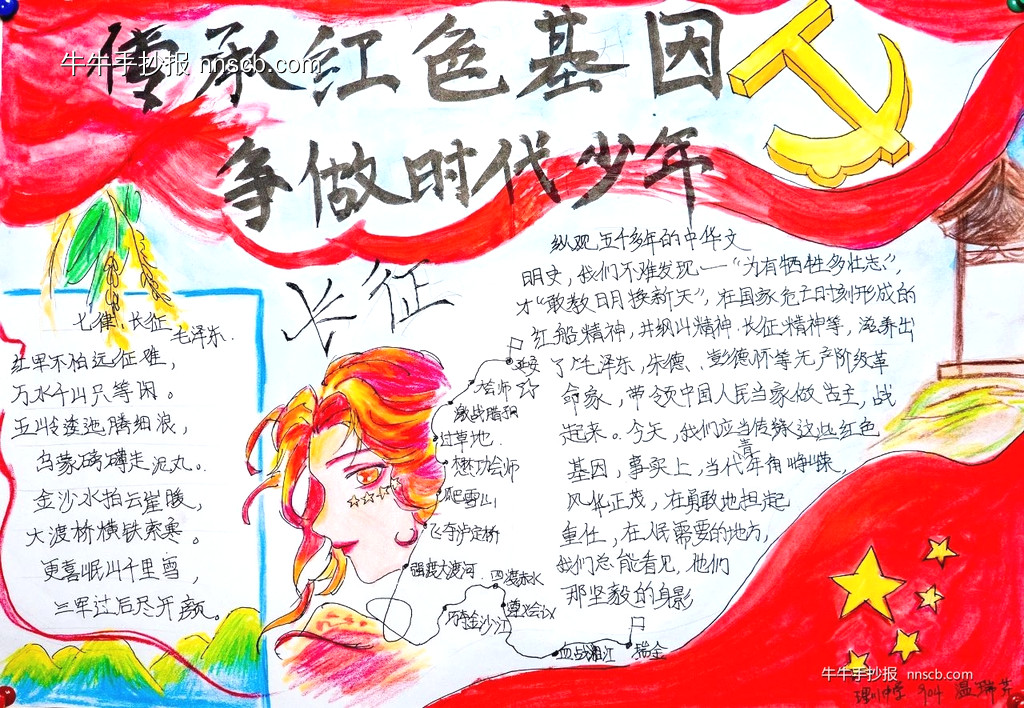 傳承红色基因
牛牛手抄报 nnscb.com
争做时代少年
长征
七律·长征
毛泽东.
红军不怕远征难,
万水千山只等闲。
五岭逶迤腾细浪,
乌蒙磅礴走泥丸。
金沙水拍云崖暖,
大渡桥横铁索寒。
更喜岷山千里雪,
三军过后尽开颜。
延安
大会师
激战腊子口
过草地.
懋功会师
爬雪山
飞夺泸定桥
强渡大渡河.
四渡赤水
巧渡金沙江
遵义会议
血战湘江
瑞金
纵观五千多年的中华文
明史,我们不难发现一“为有牺牲多壮志”,
才“敢教日月换新天”,在国家危亡时刻形成的
红船精神,井岗山精神.长征精神等,滋养出
了毛泽东,朱德、彭德怀等无产阶级革
命家,带领中国人民当家做吉主,战
起来。今天,我们应当传承这些红色
基因,事实上,当代青年角峥嵘,
风华正茂,在勇敢地担起
重任,在人民需要的地方,
我们总能看见,他们
那坚毅的身影
牛牛手抄报 nnscb.com
904 温瑞芹